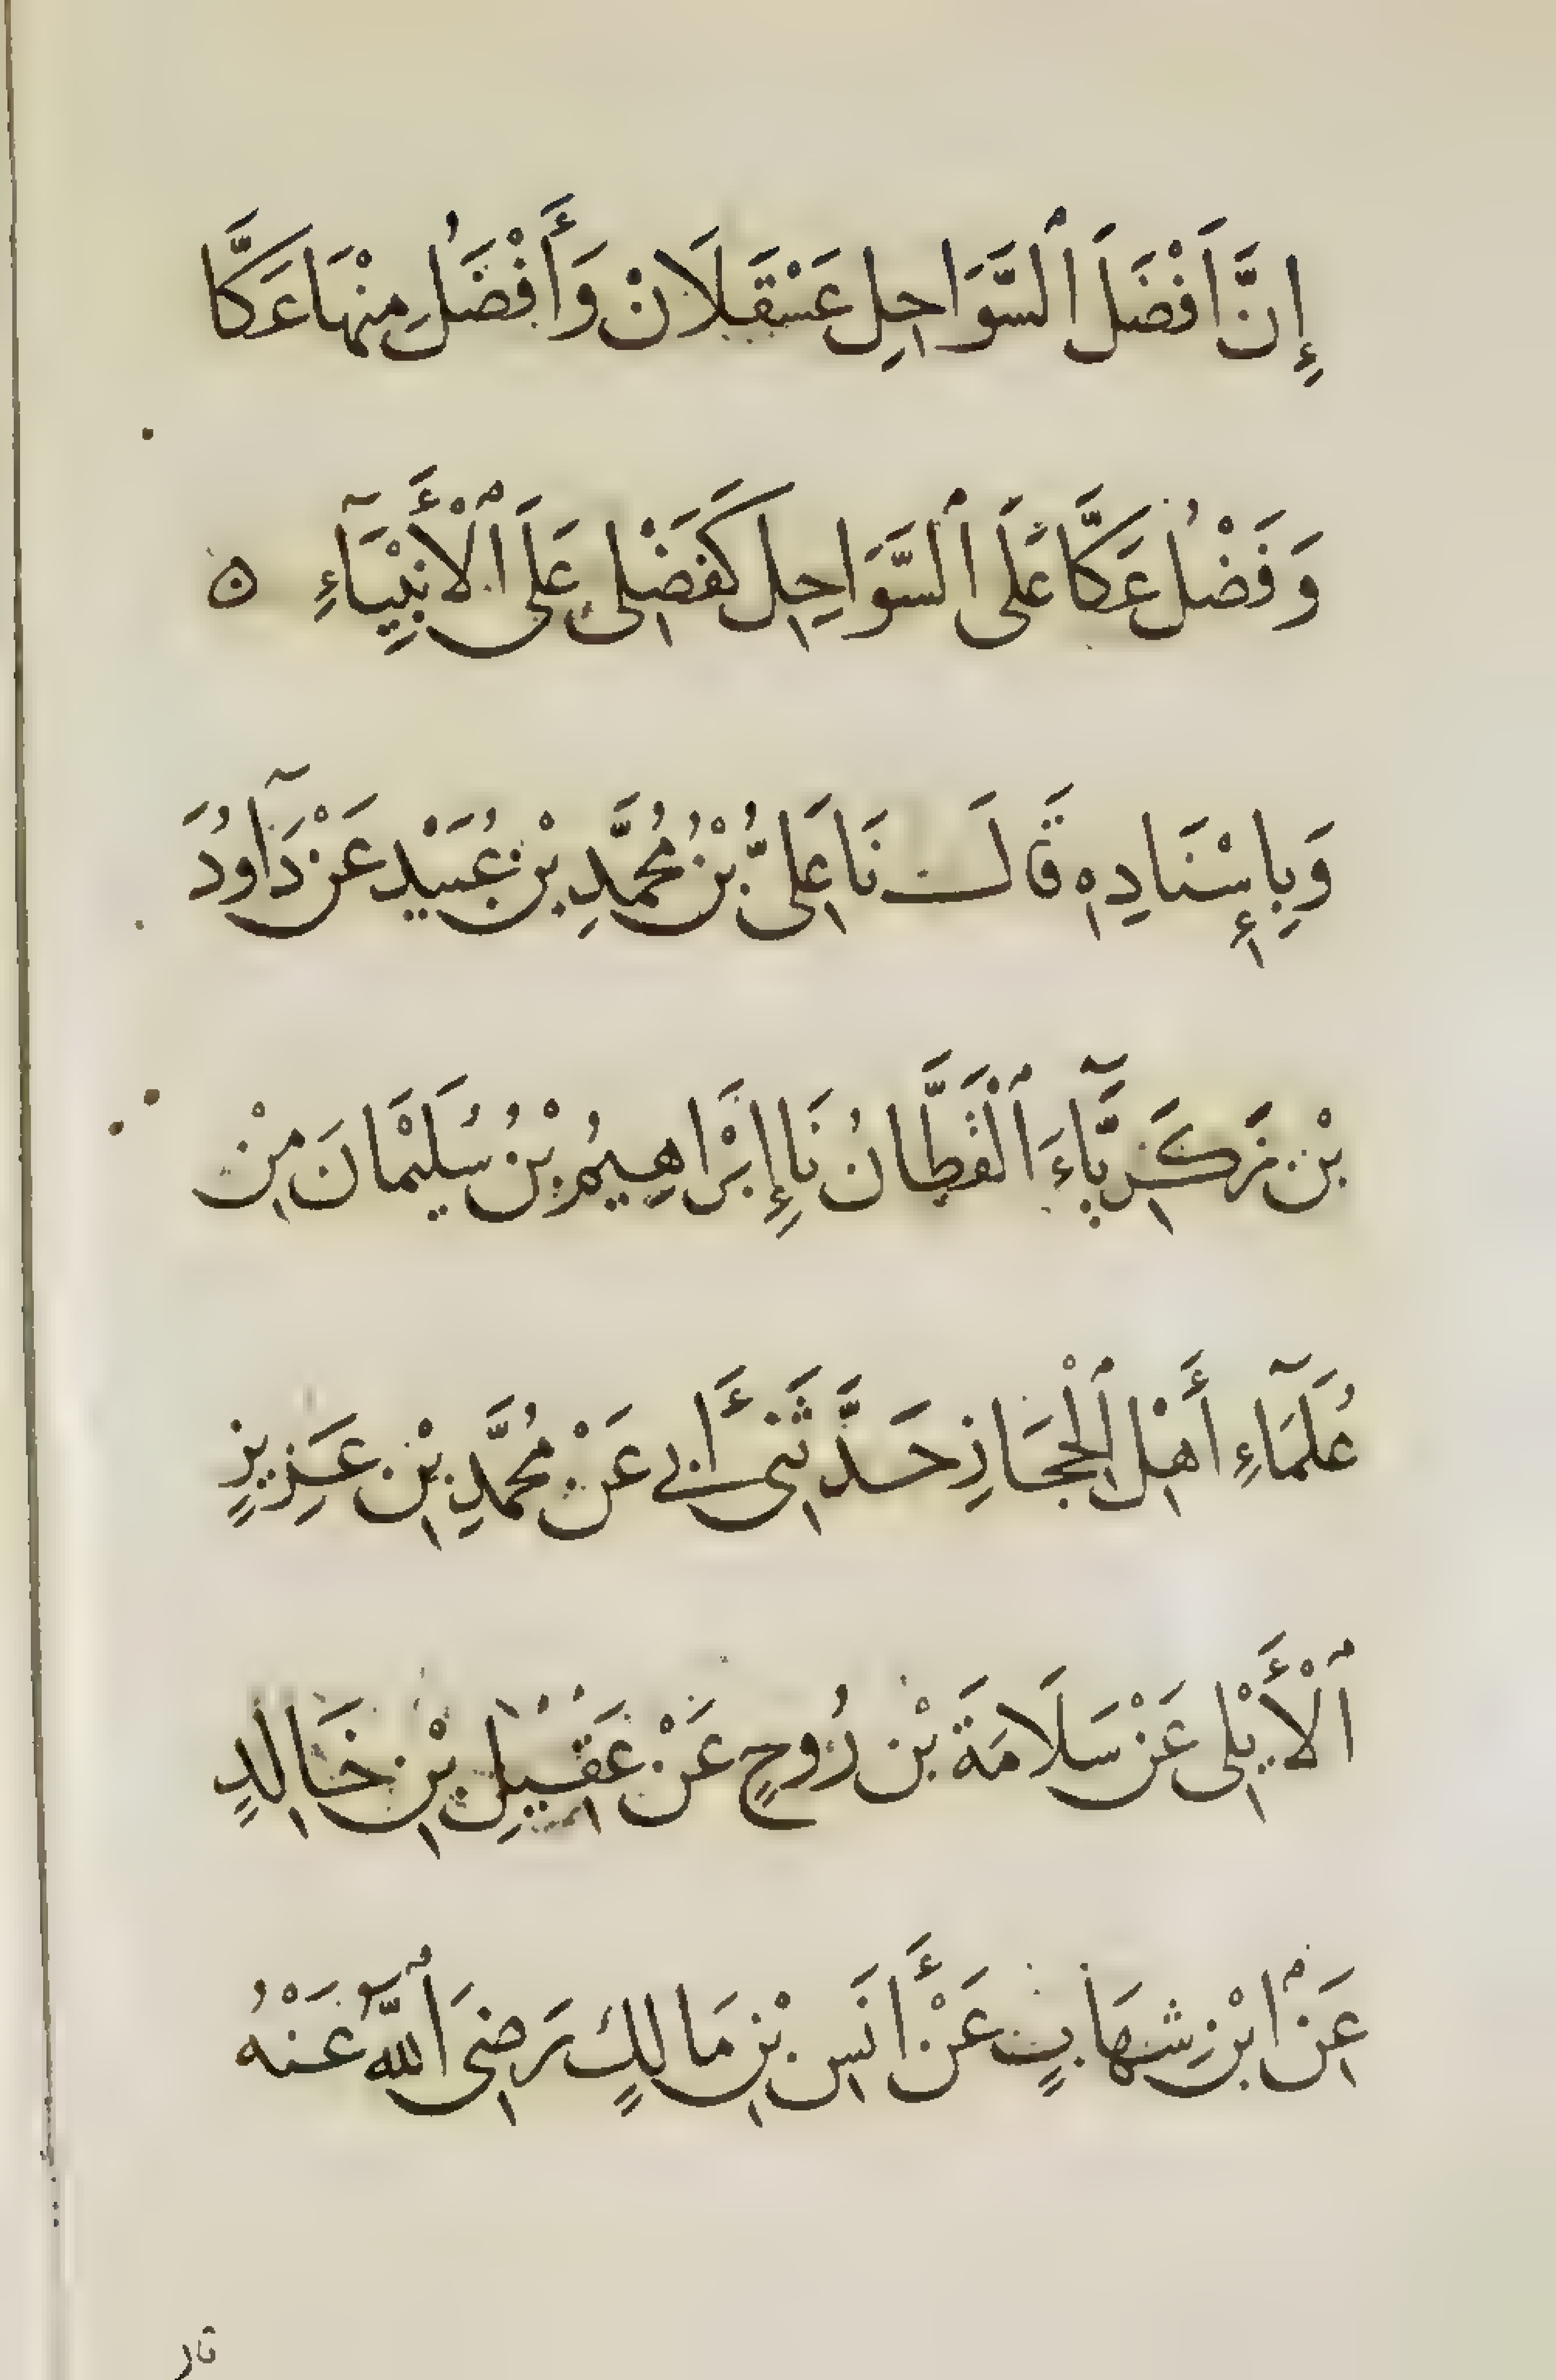 إِنَّ اَفْضَلَ ٱلسَّوَاحِلِ عَسْقَلَانْ وَأَفْضَلُ مِنْهَا عَكَّا
وَفَضْلُ عَكَّا عَلَى ٱلسَّوَاحِلِ كَفَضْلِى عَلَى ٱلْأَنْبِيَآءِ ه
وَبِإِسْنَادِهِ قَالَ نَا عَلِىُّ بْنُ مُحَمَّدِ بْنِ عُبَيْدٍ عَنْ دَآوُدَ
بْنِ زَكَرِيَّآءَ ٱلْقَطَّانُ نَا إِبْرَاهِيمُ بْنُ سُلَيْمَانَ مِنْ
عُلَمَآءِ أَهْلِ ٱلْحِجَازِ حَدَّثَنِى أَبِى عَنْ مُحَمَّدِ بْنِ عَزِيزٍ
ٱلْأَيْلِى عَنْ سَلَامَةَ بْنِ رُوحٍ عَنْ عَقِيْلِ بْنِ خَالِدٍ
عَنْ ٱبْنِ شِهَابٍ عَنْ أَنَسِ بْنِ مَالِكٍ رَضِىَ ٱللَّهُ عَنْهُ
قال